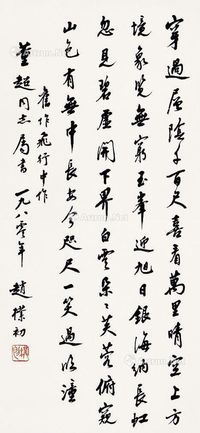 穿過層陰千百尺喜看萬里晴空上方
境象覺無窮玉峯迎旭日銀海納長虹
忽見碧虛開下界白雲朵朵芙蓉俯窺
山色有無中長安今咫尺一笑過臨潼
舊作飛行中作
董超同志屬書 一九八零年 趙樸初